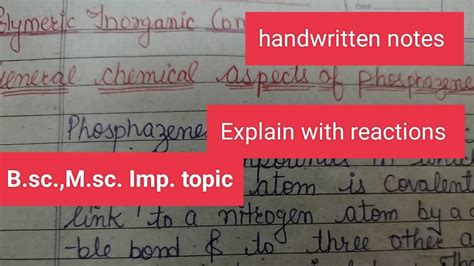 olymeric Inorganic Com
handwritten notes
eneral chemical aspects of phosphazene
Phosphazene
Explain with reactions
B.sc.,M.sc. Imp. topic
atom is covalent
link to a nitrogen atom by a
ble bond & to three other a